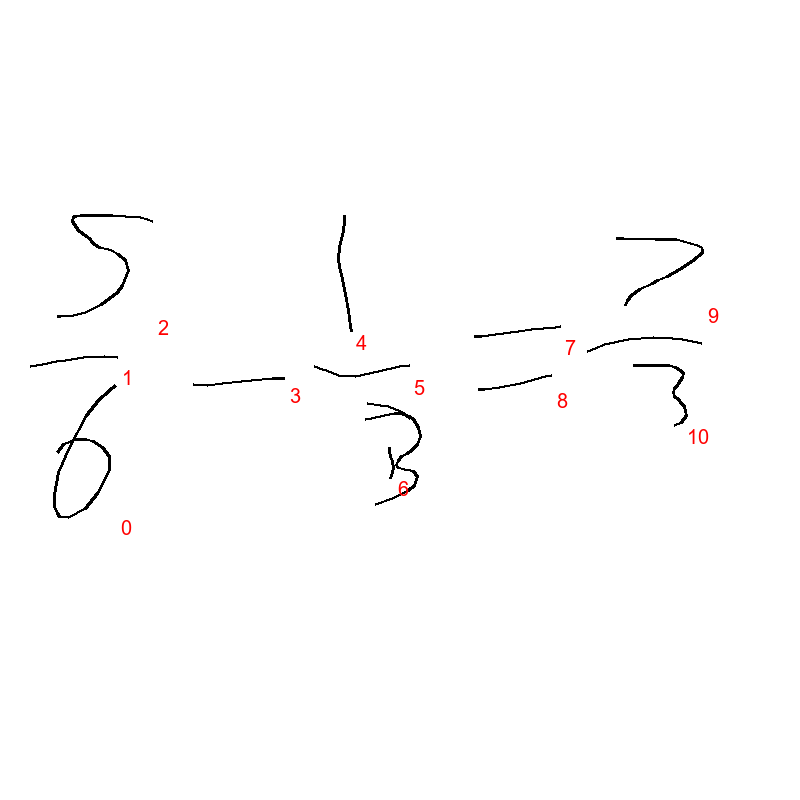 5/6 - 1/3 = 7/3
2
1
0
3
4
5
6
7
8
9
10